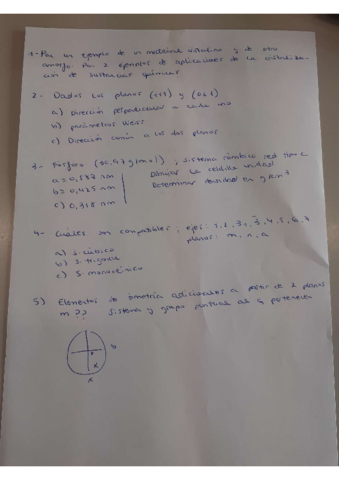 1- Pon un ejemplo de un material cristalino y de otro
amorfo. Pon 2 ejemplos de aplicaciones de la cristaliza-
ción de sustancias químicas
2- Dados los planos (111) y (061)
a) Dirección perpendicular a cada uno
b) parámetros Weiss
c) Dirección común a los dos planos
3- Fosforo (30,97 g/mol) ; sistema rómbico red tipo C
a = 0,337 nm
Dibujar la celdilla unidad
b = 0,435 nm
Determinar densidad en g/cm³
c) 0,315 nm
4- Cuáles son compatibles, ejes:
planos: m, n, a
a) S. cúbico
b) S. trigonal
c) S. monoclínico
5) Elementos de simetría adicionales a partir de 2 planos
m
Sistema y grupo puntual al q pertenece
x
x